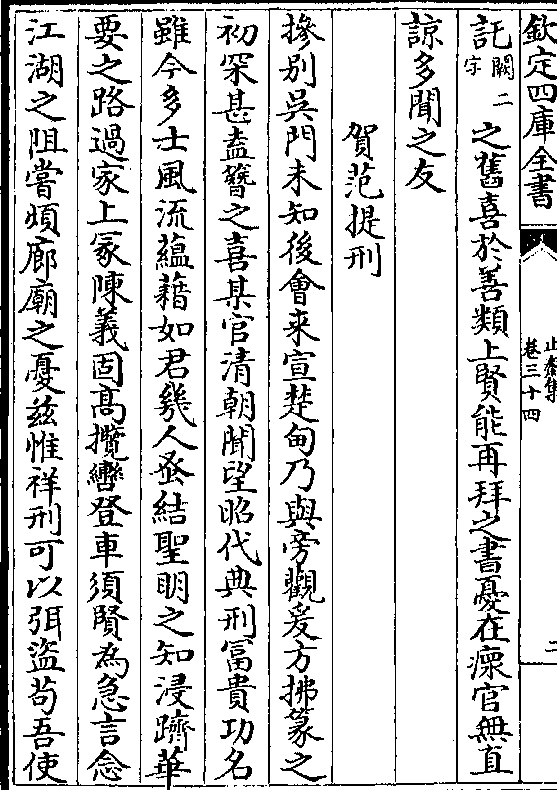 欽定四庫全書
止齋集
卷三十四
二
託闕二字之舊喜於善類上賢能再拜之書憂在瘝官無直
諒多聞之友
賀范提刑
摻別吳門未知後會来宣楚甸乃與旁觀爰方拂篆之
初罙甚盍簪之喜某官清朝聞望昭代典刑冨貴功名
雖今多士風流蘊藉如君幾人蚤結聖明之知浸躋華
要之路過家上冢陳義固髙攬轡登車須賢為急言念
江湖之阻嘗煩廊廟之憂兹惟祥刑可以弭盜苟吾使